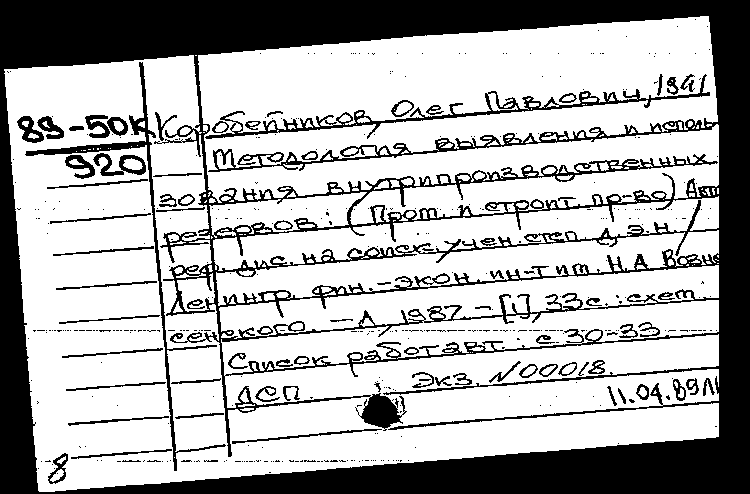 89-50К Коробейников, Олег Павлович, 1941
920 Методология выявления и исполь-
зования внутрипроизводственных
резервов: (Пром. и строит. пр-во) Авт
реф. дис. на соиск. учен. степ. д.э.н. /
Ленингр. фин.-экон. ин-т им. Н.А. Возне
сенского. - Л., 1987. - [1], 33 с.: схем.
Список работ авт.: с 30-33.
ДСП. Экз. N00018.
11.04.89
8